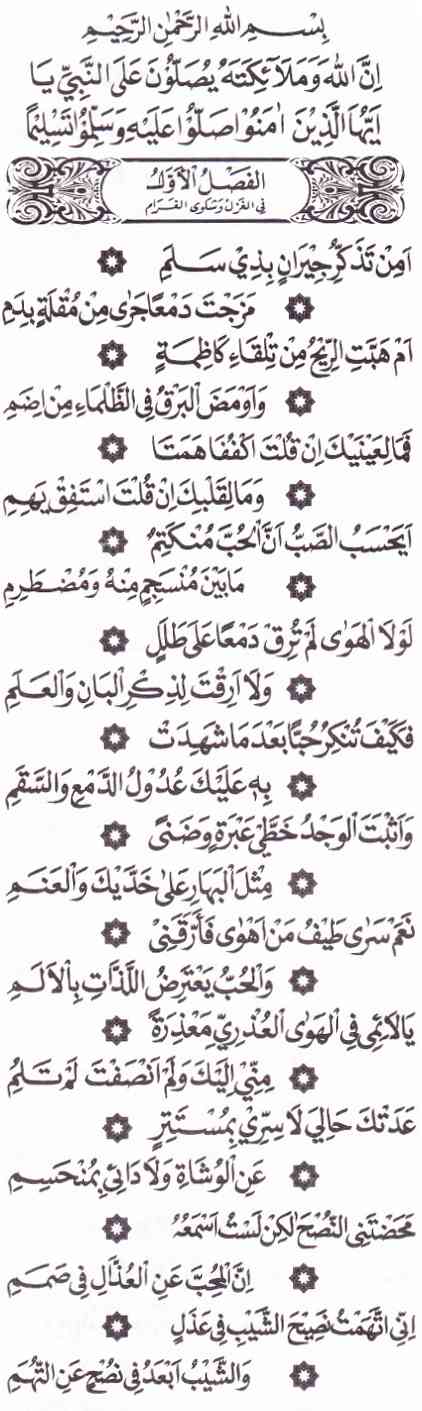 بِسْمِ اللهِ الرَّحْمٰنِ الرَّحِيْمِ
اِنَّ اللهَ وَمَلَآئِكَتَهُ يُصَلُّوْنَ عَلَى النَّبِيِّ يَا
اَيُّهَا الَّذِيْنَ اٰمَنُوْا صَلُّوْا عَلَيْهِ وَسَلِّمُوْا تَسْلِيْمًا
الفَصْلُ الْاَوَّلُ
فِي الغَزَلِ وَشَكْوَى الغَرَامِ
اَمِنْ تَذَكُّرِ جِيْرَانٍ بِذِيْ سَلَمِ
مَزَجْتَ دَمْعًا جَرٰى مِنْ مُقْلَةٍ بِدَمِ
اَمْ هَبَّتِ الرِّيْحُ مِنْ تِلْقَاءِ كَاظِمَةٍ
وَاَوْمَضَ الْبَرْقُ فِي الظَّلْمَاءِ مِنْ اِضَمِ
فَمَا لِعَيْنَيْكَ اِنْ قُلْتَ اكْفُفَا هَمَتَا
وَمَا لِقَلْبِكَ اِنْ قُلْتَ اسْتَفِقْ يَهِمِ
اَيَحْسَبُ الصَّبُّ اَنَّ الْحُبَّ مُنْكَتِمٌ
مَا بَيْنَ مُنْسَجِمٍ مِنْهُ وَمُضْطَرِمِ
لَوْلَا الْهَوٰى لَمْ تُرِقْ دَمْعًا عَلٰى طَلَلٍ
وَلَا اَرِقْتَ لِذِكْرِ الْبَانِ وَالْعَلَمِ
فَكَيْفَ تُنْكِرُ حُبًّا بَعْدَ مَا شَهِدَتْ
بِهٖ عَلَيْكَ عُدُوْلُ الدَّمْعِ وَالسَّقَمِ
وَاَثْبَتَ الْوَجْدُ خَطَّيْ عَبْرَةٍ وَضَنًى
مِثْلَ الْبَهَارِ عَلٰى خَدَّيْكَ وَالْعَنَمِ
نَعَمْ سَرٰى طَيْفُ مَنْ اَهْوٰى فَاَرَّقَنِيْ
وَالْحُبُّ يَعْتَرِضُ اللَّذَّاتِ بِالْاَلَمِ
يَا لَائِمِيْ فِي الْهَوَى الْعُذْرِيِّ مَعْذِرَةً
مِنِّيْ اِلَيْكَ وَلَوْ اَنْصَفْتَ لَمْ تَلُمِ
عَدَتْكَ حَالِيَ لَا سِرِّيْ بِمُسْتَتِرٍ
عَنِ الْوُشَاةِ وَلَا دَائِيْ بِمُنْحَسِمِ
مَحَضْتَنِي النُّصْحَ لٰكِنْ لَسْتُ اَسْمَعُهُ
اِنَّ الْمُحِبَّ عَنِ الْعُذَّالِ فِيْ صَمَمِ
اِنِّي اتَّهَمْتُ نَصِيْحَ الشَّيْبِ فِيْ عَذَلٍ
وَالشَّيْبُ اَبْعَدُ فِيْ نُصْحٍ عَنِ التُّهَمِ